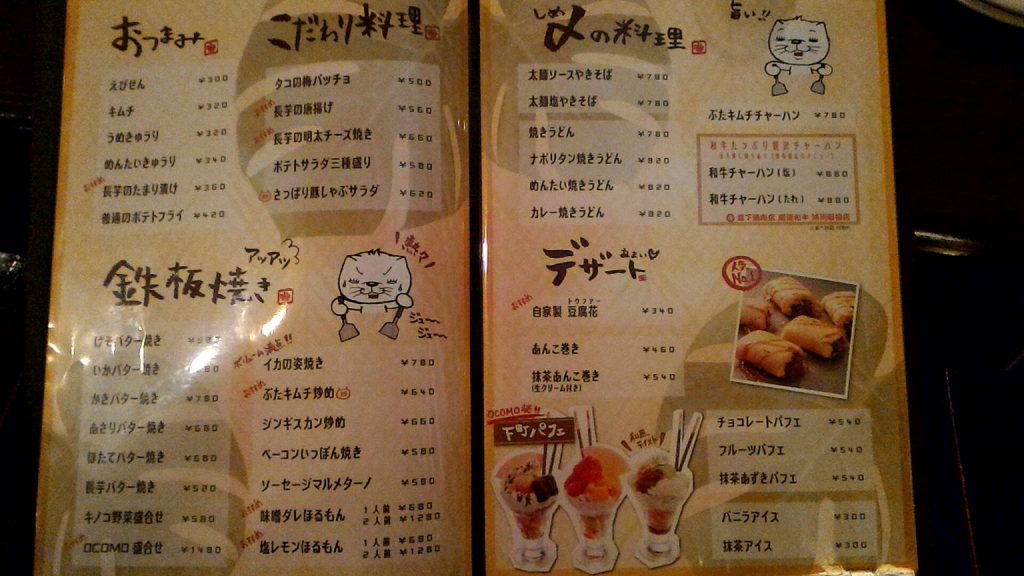 おつまみ
えびせん ¥300
キムチ ¥320
うめきゅうり ¥320
めんたいきゅうり ¥340
おすすめ
長芋のたまり漬け ¥360
普通のポテトフライ ¥420
こだわり料理
タコの梅パッチョ ¥500
おすすめ
長芋の唐揚げ ¥560
おすすめ
長芋の明太チーズ焼き ¥660
ポテトサラダ三種盛り ¥580
さっぱり豚しゃぶサラダ ¥620
アツアツ
鉄板焼き
熱々
ジュ〜
ジュ〜
げそバター焼き
いかバター焼き
かきバター焼き ¥780
あさりバター焼き ¥680
ほたてバター焼き ¥680
長芋バター焼き ¥520
キノコ野菜盛合せ ¥580
OCOMO盛合せ ¥1480
ボリューム満点!!
イカの姿焼き ¥780
おすすめ
ぶたキムチ炒め ¥640
ジンギスカン炒め ¥660
ベーコンいっぽん焼き ¥580
ソーセージマルメターノ ¥580
おすすめ
味噌ダレほるもん 1人前 ¥680
2人前 ¥1280
おすすめ
塩レモンほるもん 1人前 ¥680
2人前 ¥1280
しめ
〆の料理
旨い!!
太麺ソースやきそば ¥780
太麺塩やきそば ¥780
焼きうどん ¥780
ナポリタン焼うどん ¥820
めんたい焼きうどん ¥820
カレー焼きうどん ¥820
ぶたキムチチャーハン ¥780
和牛たっぷり贅沢チャーハン
和牛チャーハン(塩) ¥880
和牛チャーハン(たれ) ¥880
デザート
おすすめ
トウファー
自家製 豆腐花 ¥340
あんこ巻き ¥460
抹茶あんこ巻き ¥540
(生クリーム付き)
人気
No.1
OCOMO発!!
下町パフェ
和風
テイスト
チョコレートパフェ ¥540
フルーツパフェ ¥540
抹茶あずきパフェ ¥540
バニラアイス ¥300
抹茶アイス ¥300